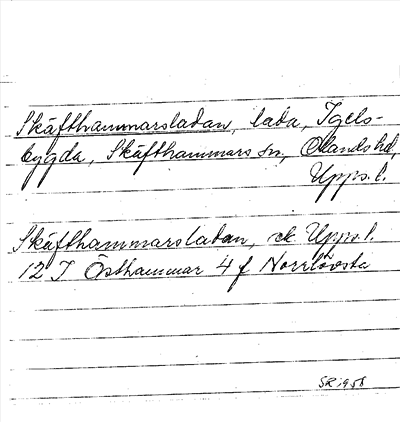 Skäfthammarsladan, lada, Igels-
bygda, Skäfthammars sn, Ölands hd,
Upps. l.
Skäfthammarsladan, ek. Upps. l.
12 I Östhammar 4 f Norrlövsta
SR 1958